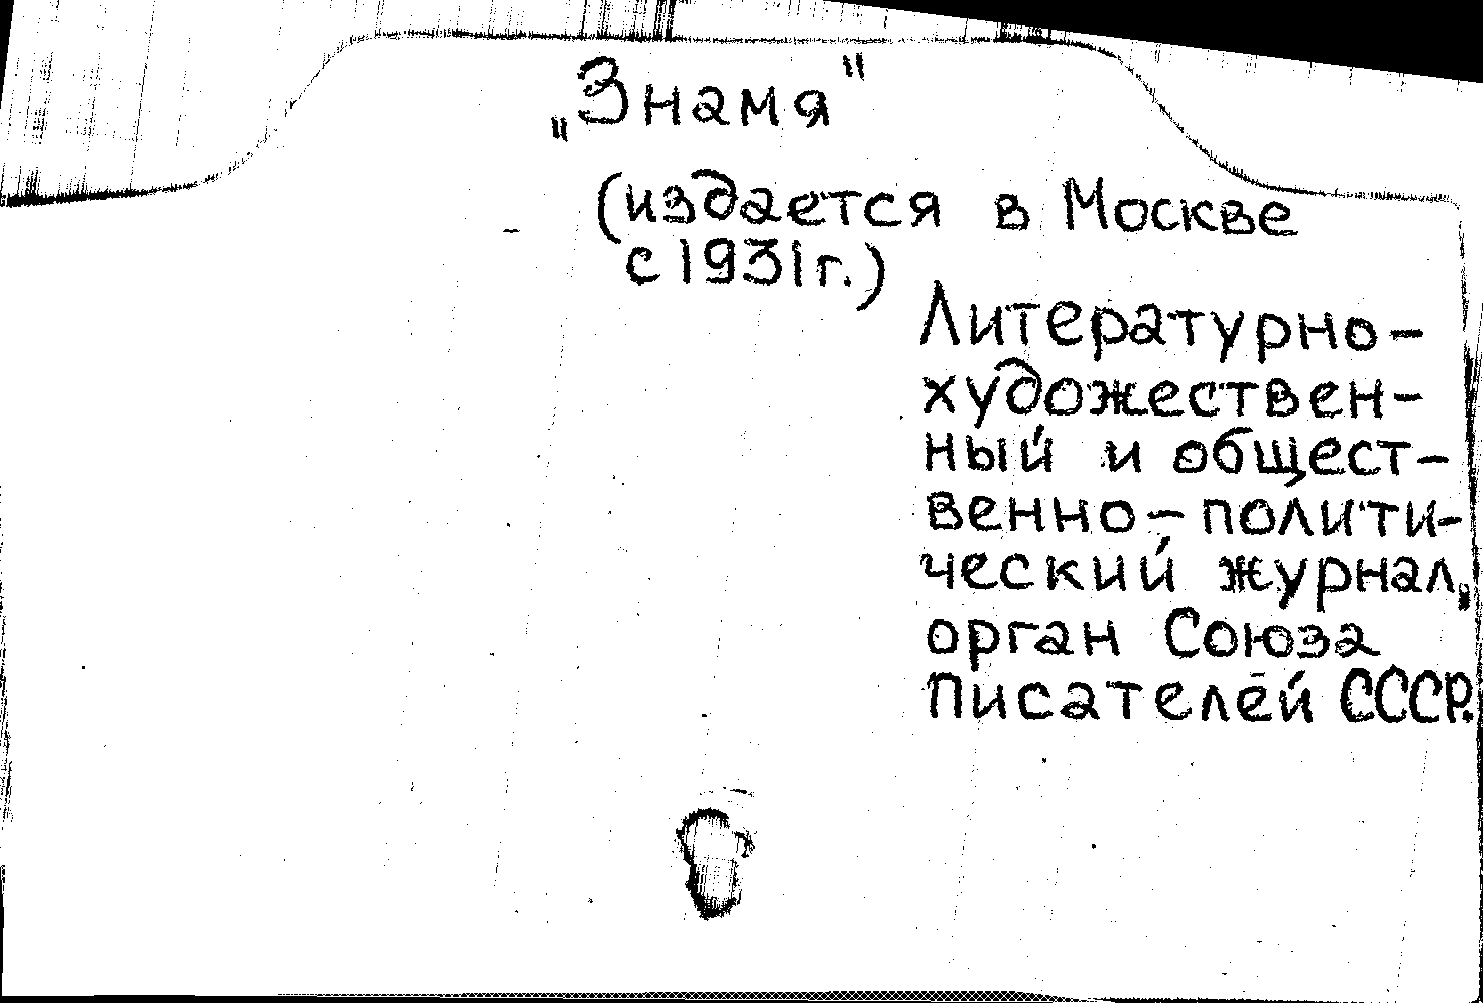 „Знамя"
(издается в Москве
с 1931г.)
Литературно-
художествен-
ный и общест-
венно-полити-
ческий журнал,
орган Союза
Писателей СССР.